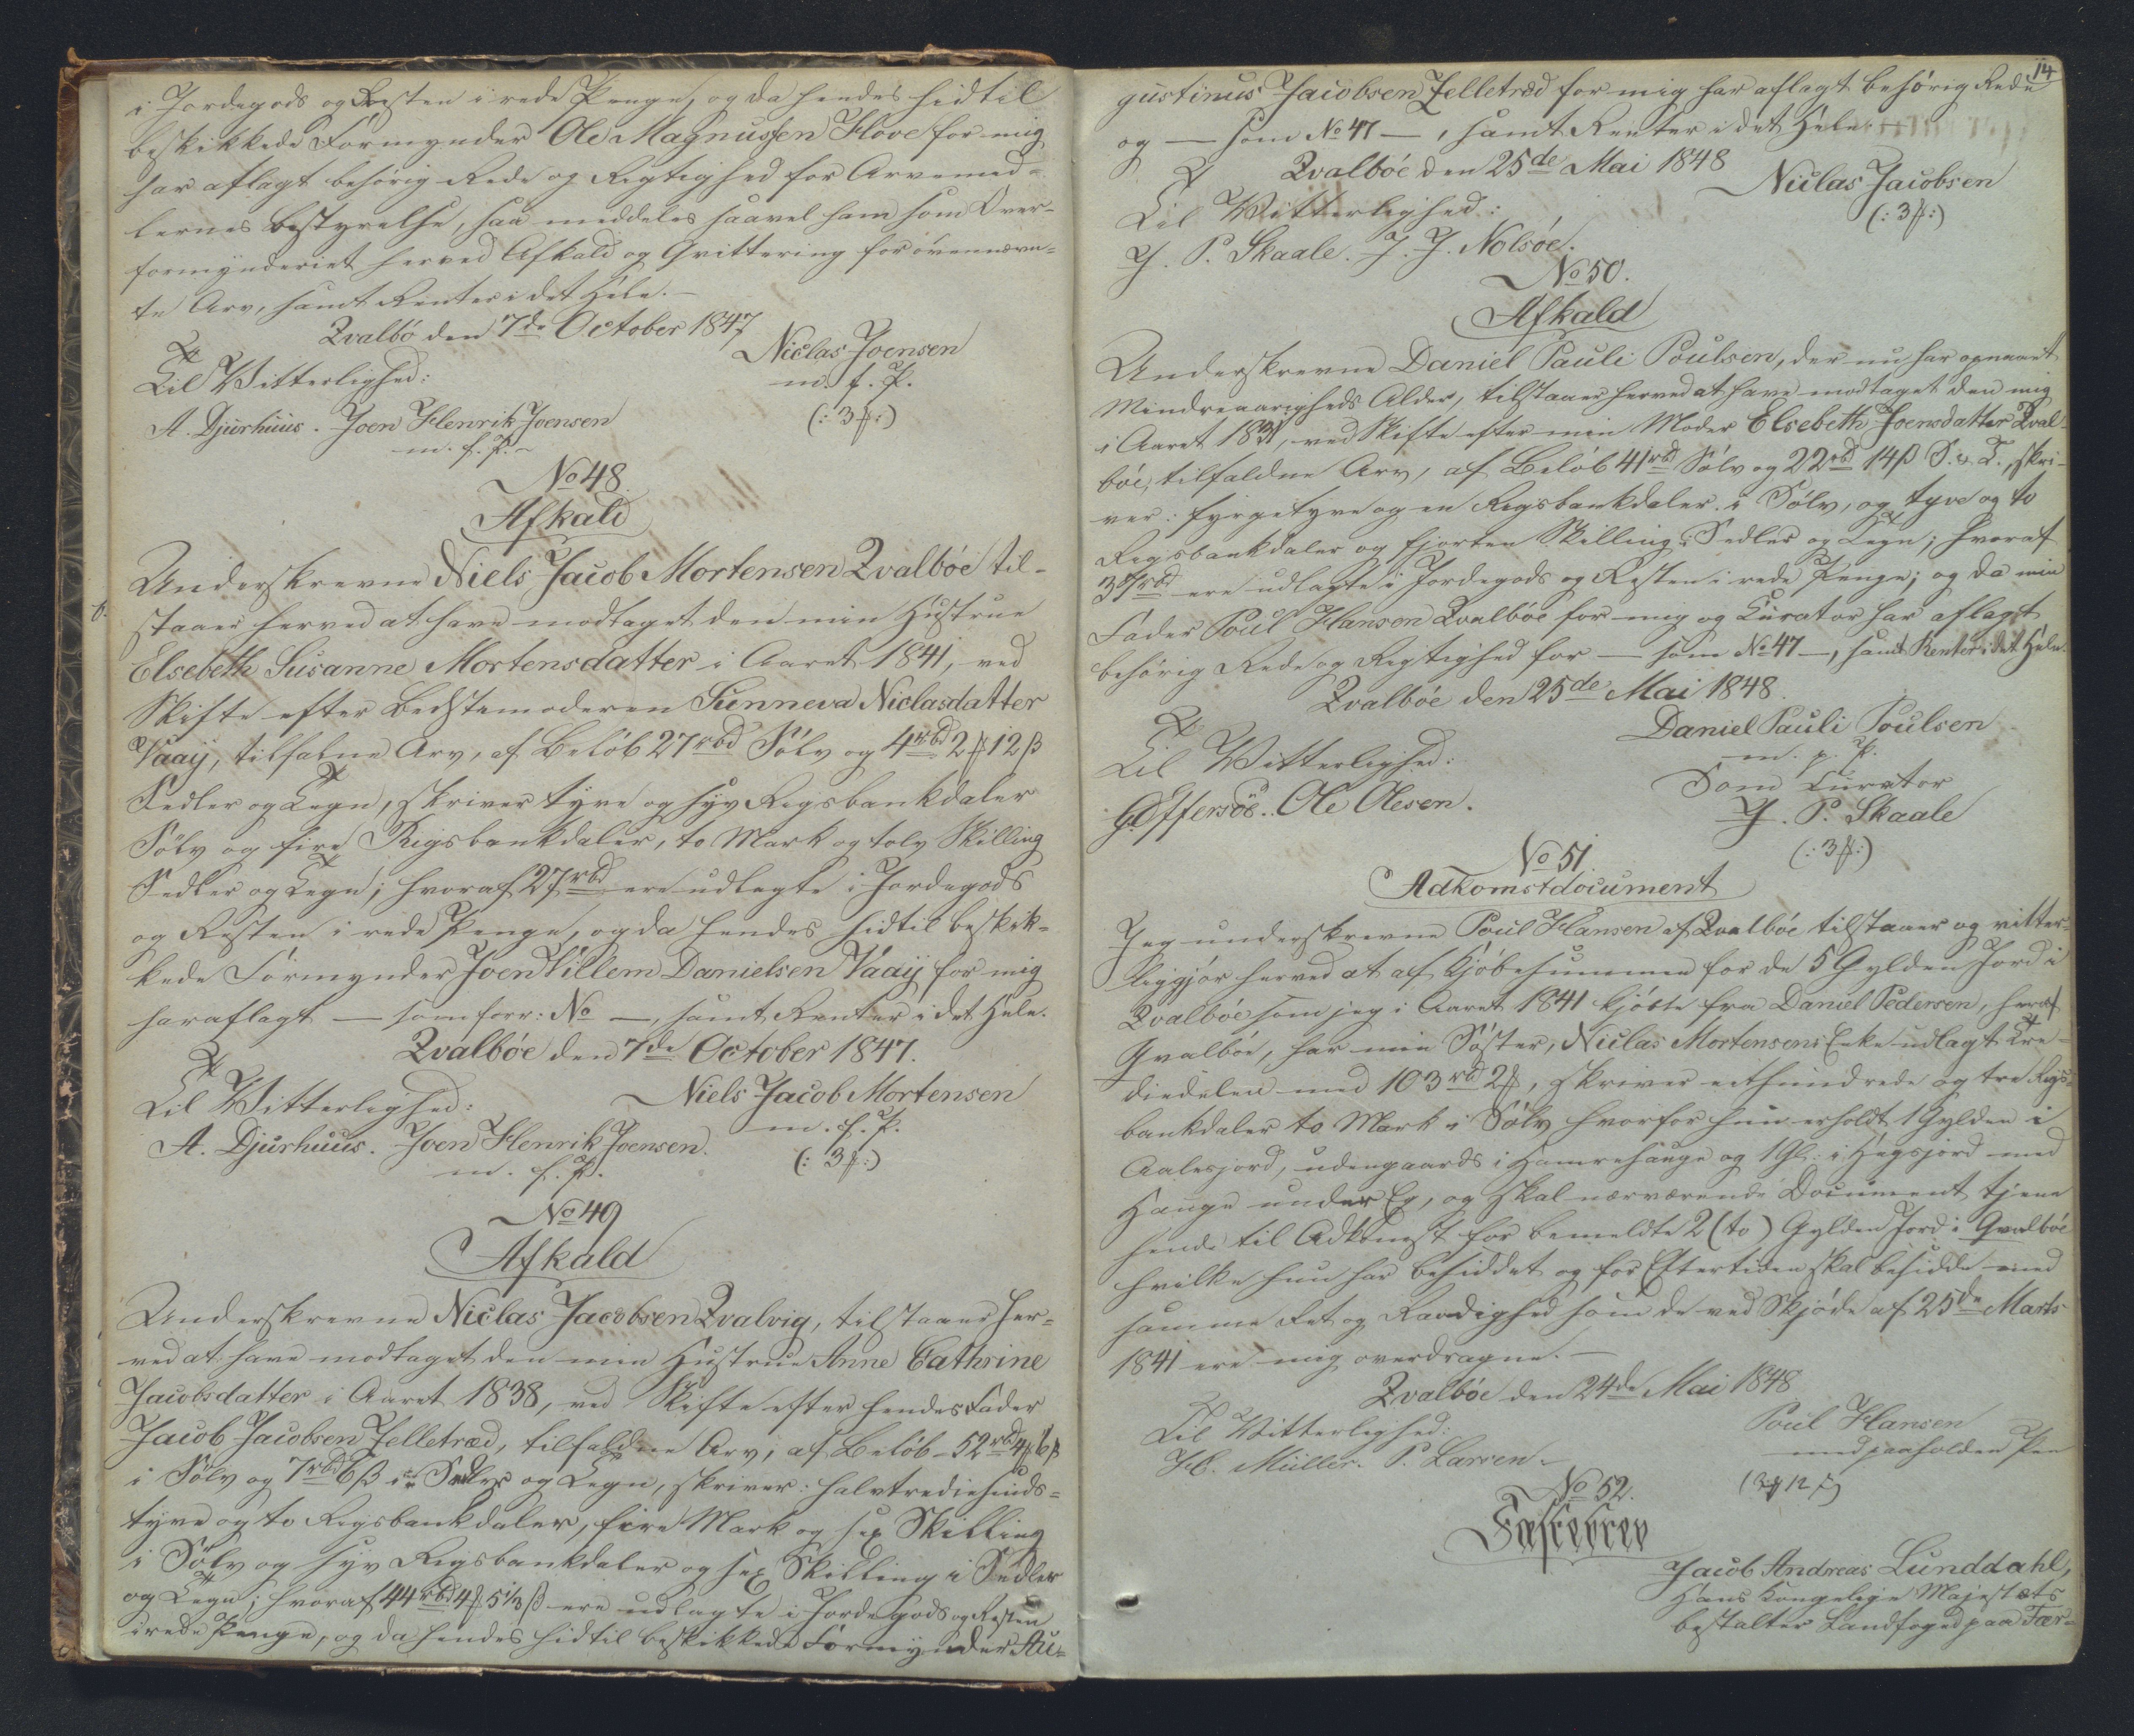 i Jordegods og Resten i rede Penge, og da hendes hidtil
beskikkede Formynder Ole Magnussen Hove for mig
har aflagt behörig Rede og Rigtighed for Arvemed-
lernes Bestyrelse, saa meddeles saavel ham som Over-
formynderiet herved Afkald og Qvittering for ovennævn-
te Arv, samt Renter i det Hele.—
Qvalbö den 7de October 1847
Niclas Joensen
m. f. P.
(: 3 ß :)
Til Vitterlighed:
A. Djurhuus. Joen Henrik Joensen
m. f. P.
No 48.
Afkald
Underskrevne Niels Jacob Mortensen Qvalböe til-
staaer herved at have modtaget den min Hustrue
Elsebeth Susanne Mortensdatter i Aaret 1841, ved
Skifte efter Bedstemoderen Sunneva Niclasdatter
Vaaij, tilfaldne Arv, af Belöb 27 rbd Sölv og 4 rbd 2 ₰ 12 β
Sedler og Tegn, skriver tyve og syv Rigsbankdaler
Sölv og fire Rigsbankdaler, to Mark og tolv Skilling
Sedler og Tegn; hvoraf 27 rbd ere udlagte i Jordegods
og Resten i rede Penge, og da hendes hidtil beskik-
kede Formynder Joen Villem Danielsen Vaaij for mig
har aflagt — som forr: No —, samt Renter i det Hele.
Qvalböe den 7de October 1847.
Niels Jacob Mortensen
m. f. P.
(: 3 ß :)
Til Vitterlighed:
A. Djurhuus. Joen Henrik Joensen.
m. f. P.
No 49
Afkald
Underskrevne Niclas Jacobsen Qvalvig, tilstaaer her-
ved at have modtaget den min Hustrue Anne Cathrine
Jacobsdatter i Aaret 1838, ved Skifte efter hendes Fader
Jacob Jacobsen Jelletræd, tilfaldne Arv, af Belöb 52 rbd 4 ₰ 6 β
i Sölv og 7 rbd 6 β i Sedler og Tegn, skriver: halvtrediesinds-
tyve og to Rigsbankdaler, fire Mark og sex Skilling
i Sölv og syv Rigsbankdaler og sex Skilling i Sedler
og Tegn; hvoraf 44 rbd 4 ₰ 5 1/3 β ere udlagte i Jordegods og Resten
i rede Penge, og da hendes hidtil beskikkede Formynder Au-
14
gustinus Jacobsen Jelletræd for mig har aflagt behörig Rede
og — som No 47 —, samt Renter i det Hele.—
Qvalböe den 25de Mai 1848
Niclas Jacobsen
(: 3 ß :)
Til Vitterlighed:
J. P. Skaale. J. J. Nolsöe.
No 50.
Afkald
Underskrevne Daniel Pauli Poulsen, der nu har opnaaet
Mindreaarigheds Alder, tilstaaer herved at have modtaget den mig
i Aaret 1831, ved Skifte efter min Moder Elsebeth Joensdatter Qval-
böe, tilfaldne Arv, af Belöb 41 rbd Sölv og 22 rbd 14 β S. & T., skri-
ver: fyrgetyve og en Rigsbankdaler i Sölv, og tyve og to
Rigsbankdaler og fjorten Skilling i Sedler og Tegn; hvoraf
ere udlagte i Jordegods og Resten i rede Penge; og da min
Fader Poul Hanson Qvalböe for mig og Curator har aflagt
behörig Rede og Rigtighed for — som No 47 —, samt Renter i det Hele.
Qvalböe den 25de Mai 1848.
Daniel Pauli Poulsen
m. p. P.
Som Curator
J. P. Skaale
(: 3 ß :)
Til Vitterlighed:
G. Effersöe. Ole Olesen.
No 51.
Adkomstdocument
Jeg underskrevne Poul Hansen af Qvalböe tilstaaer og vitter-
liggjör herved at af Kjöbesummen for de 5 Gylden Jord i
Qvalböe som jeg i Aaret 1841 kjöbte fra Daniel Pedersen, hvoraf
Qvalböe, har min Söster, Niclas Mortensens Enke udlagt Tre-
diedelen med 103 rbd 2 ₰, skriver eethundrede og tre Rigs-
bankdaler to Mark i Sölv hvorfor hun erholdt 1 Gylden i
Aalesjord, udengaards i Hamrehauge og 1 Gl: i Hegsjord med
Hauge under Eg, og skal nærværende Document tjene
hende til Adkomst for bemeldte 2 (to) Gylden Jord i Qvalböe
hvilke hun har besiddet og for Eftertiden skal besidde med
samme Ret og Raadighed som de ved Skjöde af 25de Marts
1841 ere mig overdragne.—
Qvalböe den 24de Mai 1848
Poul Hansen
med paaholden Pen
Til Vitterlighed:
H. C. Müller. P. Larsen.
No 52.
Fæstebrev
Jacob Andreas Lunddahl,
Hans Kongelige Majestæts
bestalter Landfoged paa Fær-